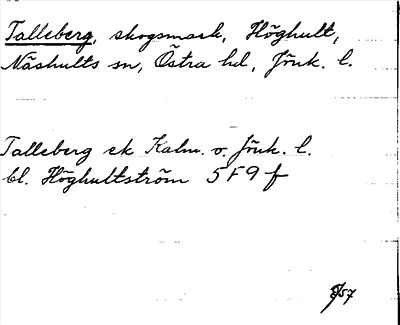 Talleberg, skogsmark, Höghult,
Näshults sn, Östra hd, Jönk. l.
Talleberg ek Kalm. o. Jönk. l.
bl. Höghultström 5F9f
57